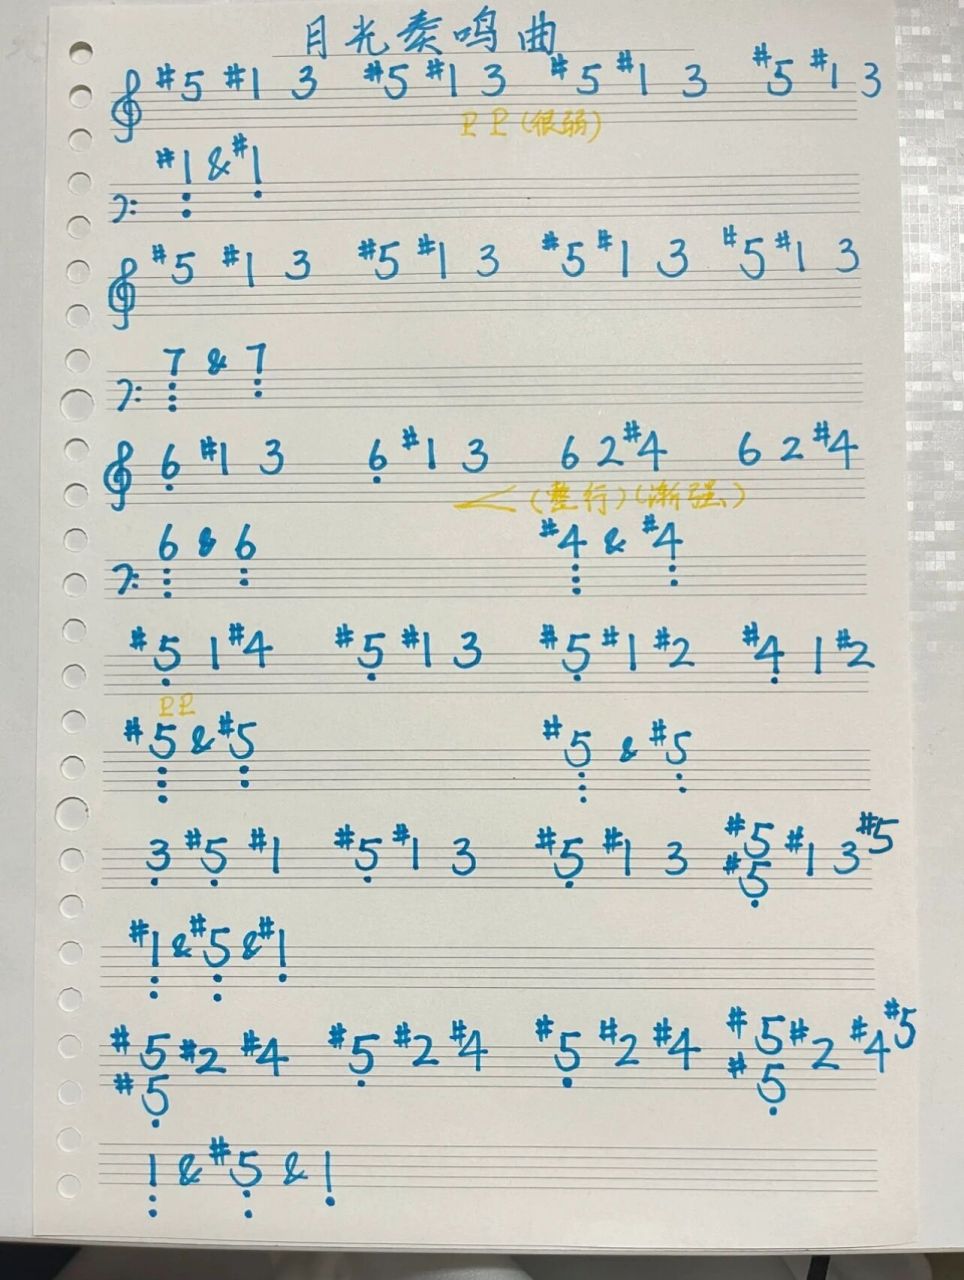 月光奏鸣曲
#5 #1 3 #5 #1 3 #5 #1 3 #5 #1 3
P P (很弱)
#1 & #1
#5 #1 3 #5 #1 3 #5 #1 3 #5 #1 3
7 & 7
6 #1 3 6 #1 3 6 2 #4 6 2 #4
< (整行) (渐强)
6 & 6 #4 & #4
#5 1 #4 #5 #1 3 #5 #1 #2 #4 1 #2
P P
#5 & #5 #5 & #5
3 #5 #1 #5 #1 3 #5 #1 3 #5 #1 3 #5
#5
#1 & #5 & #1
#5 #2 #4 #5 #2 #4 #5 #2 #4 #5 #2 #4 #5
#5 #5
1 & #5 & 1